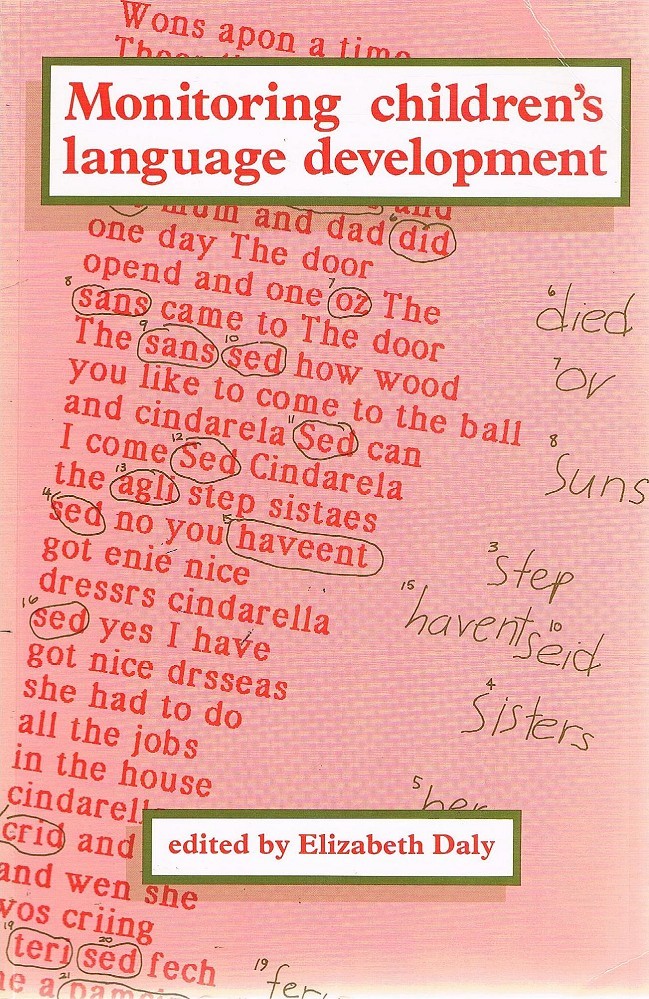 Wons apon a time
Monitoring children's
language development
mum and dad 6 did
one day The door
opend and one 7 oz The
8 sans came to The door
The 9 sans 10 sed how wood
you like to come to the ball
and cindarela 11 Sed can
I come 12 Sed Cindarela
the 13 agli step sistaes
14 sed no you 15 haveent
got enie nice
dressrs cindarella
16 sed yes I have
got nice drsseas
she had to do
all the jobs
in the house
cindarella
crid and
and wen she
vos criing
19 teri 20 sed fech
21
6 died
7 ov
8 Suns
3 step
15 havent
10 seid
4 Sisters
5 her
19
edited by Elizabeth Daly